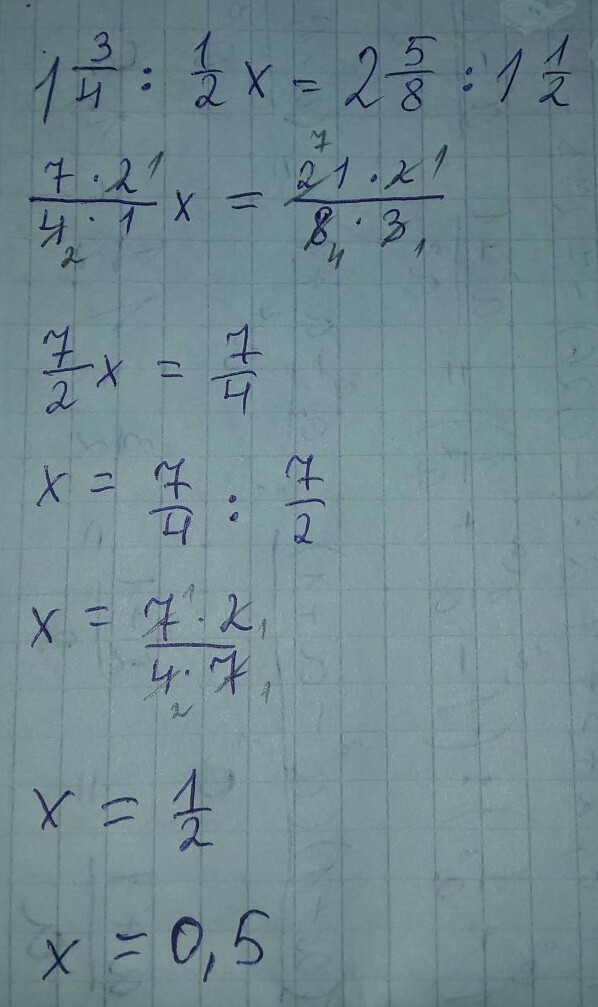 1 3/4 : 1/2 x = 2 5/8 : 1 1/2
7 · 2 1 / 4 2 · 1 x = 21 7 · 2 1 / 8 4 · 3 1
7/2 x = 7/4
x = 7/4 : 7/2
x = 7 1 · 2 1 / 4 2 · 7 1
x = 1/2
x = 0,5